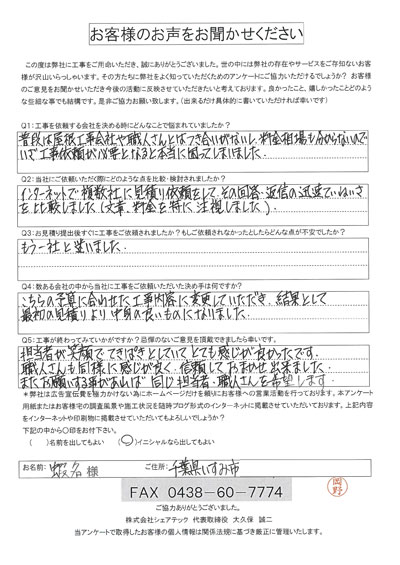 お客様のお声をお聞かせください
この度は弊社に工事をご用命いただき、誠にありがとうございました。世の中には弊社の存在やサービスをご存知ないお客様
が沢山いらっしゃいます。その方たちに弊社をよく知っていただくためのアンケートにご協力いただけるでしょうか？お客様
のご意見をお聞かせいただき今後の活動に反映させていただきたいと考えております。良かったこと、嬉しかったことどのよ
うな些細な事でも結構です。是非ご協力お願い致します。（出来るだけ具体的に書いていただければ幸いです）
Q1：工事を依頼する会社を決める時にどんなことで悩まれていましたか？
普段は屋根工事会社や職人さんとはつき合いがないし、料金相場も分からないので
いざ工事依頼が必要となると本当に困ってしまいました。
Q2：当社にご依頼いただく際にどのような点を比較・検討されましたか？
インターネットで複数社に見積り依頼をして、その回答・返信の迅速ていねいさ
を比較しました（文章、料金を特に注視しました）。
Q3：お見積り提出後すぐに工事をご依頼されましたか？もしご依頼されなかったとしたらどんな点が不安でしたか？
もう一社と迷いました。
Q4：数ある会社の中から当社に工事をご依頼いただいた決め手は何ですか？
こちらの予算に合わせた工事内容に変更していただき、結果として
最初の見積りより中身の良いものになりました。
Q5：工事が終わってみていかがですか？忌憚のないご意見を頂戴できましたら幸いです。
担当者が笑顔でてきぱきとしていてとても感じが良かったです。
職人さんも同様に感じが良く、信頼しておまかせ出来ました。
またお願いする事があれば同じ担当者・職人さんを希望します。
＊弊社は広告宣伝費を極力かけない為にホームページだけを頼りにお客様への営業活動を行っております。本アンケート
用紙またはお客様宅の調査風景や施工状況を随時ブログ形式のインターネットに掲載させていただいております。上記内容
をインターネットや印刷物に掲載させていただいてもよろしいでしょうか？
下記の中から〇印をお付け下さい。
（　）名前を出してもよい　（〇）イニシャルなら出してもよい
お名前： 蝦名 様　ご住所： 千葉県いすみ市
FAX 0438-60-7774
岡野
ご協力ありがとうございました。
株式会社シェアテック 代表取締役 大久保 誠二
当アンケートで取得したお客様の個人情報は関係法規に基づき厳正に管理いたします。